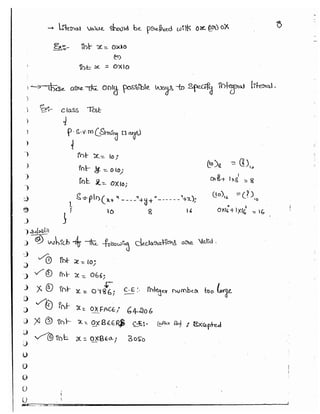 → Literal value should be prefixed with 0x (or) 0X
8
Ex:- int x = 0x10
(or)
int x = 0X10
→ these are the only possible ways to specify integral literal.
Ex:- class Test
{
p.s.v.m(String [] args)
{
int x = 10;
int y = 010;
int z = 0X10;
S.o.pln(x+"----"+y+"------"+z);
10 8 16
}
}
(10)₈ = (?)₁₀
0x8⁰ + 1x8¹ = 8
(10)₁₆ = (?)₁₀
0x16⁰ + 1x16¹ = 16
which of the following declarations are valid.
✓ ① int x = 10;
✓ ② int x = 066;
X ③ int x = 0786; C.E:- Integer number too large
✓ ④ int x = 0XFACE; 64206
X ⑤ int x = 0XBEER; C.E:- ; Excepted
✓ ⑥ int x = 0XBEa; 3050